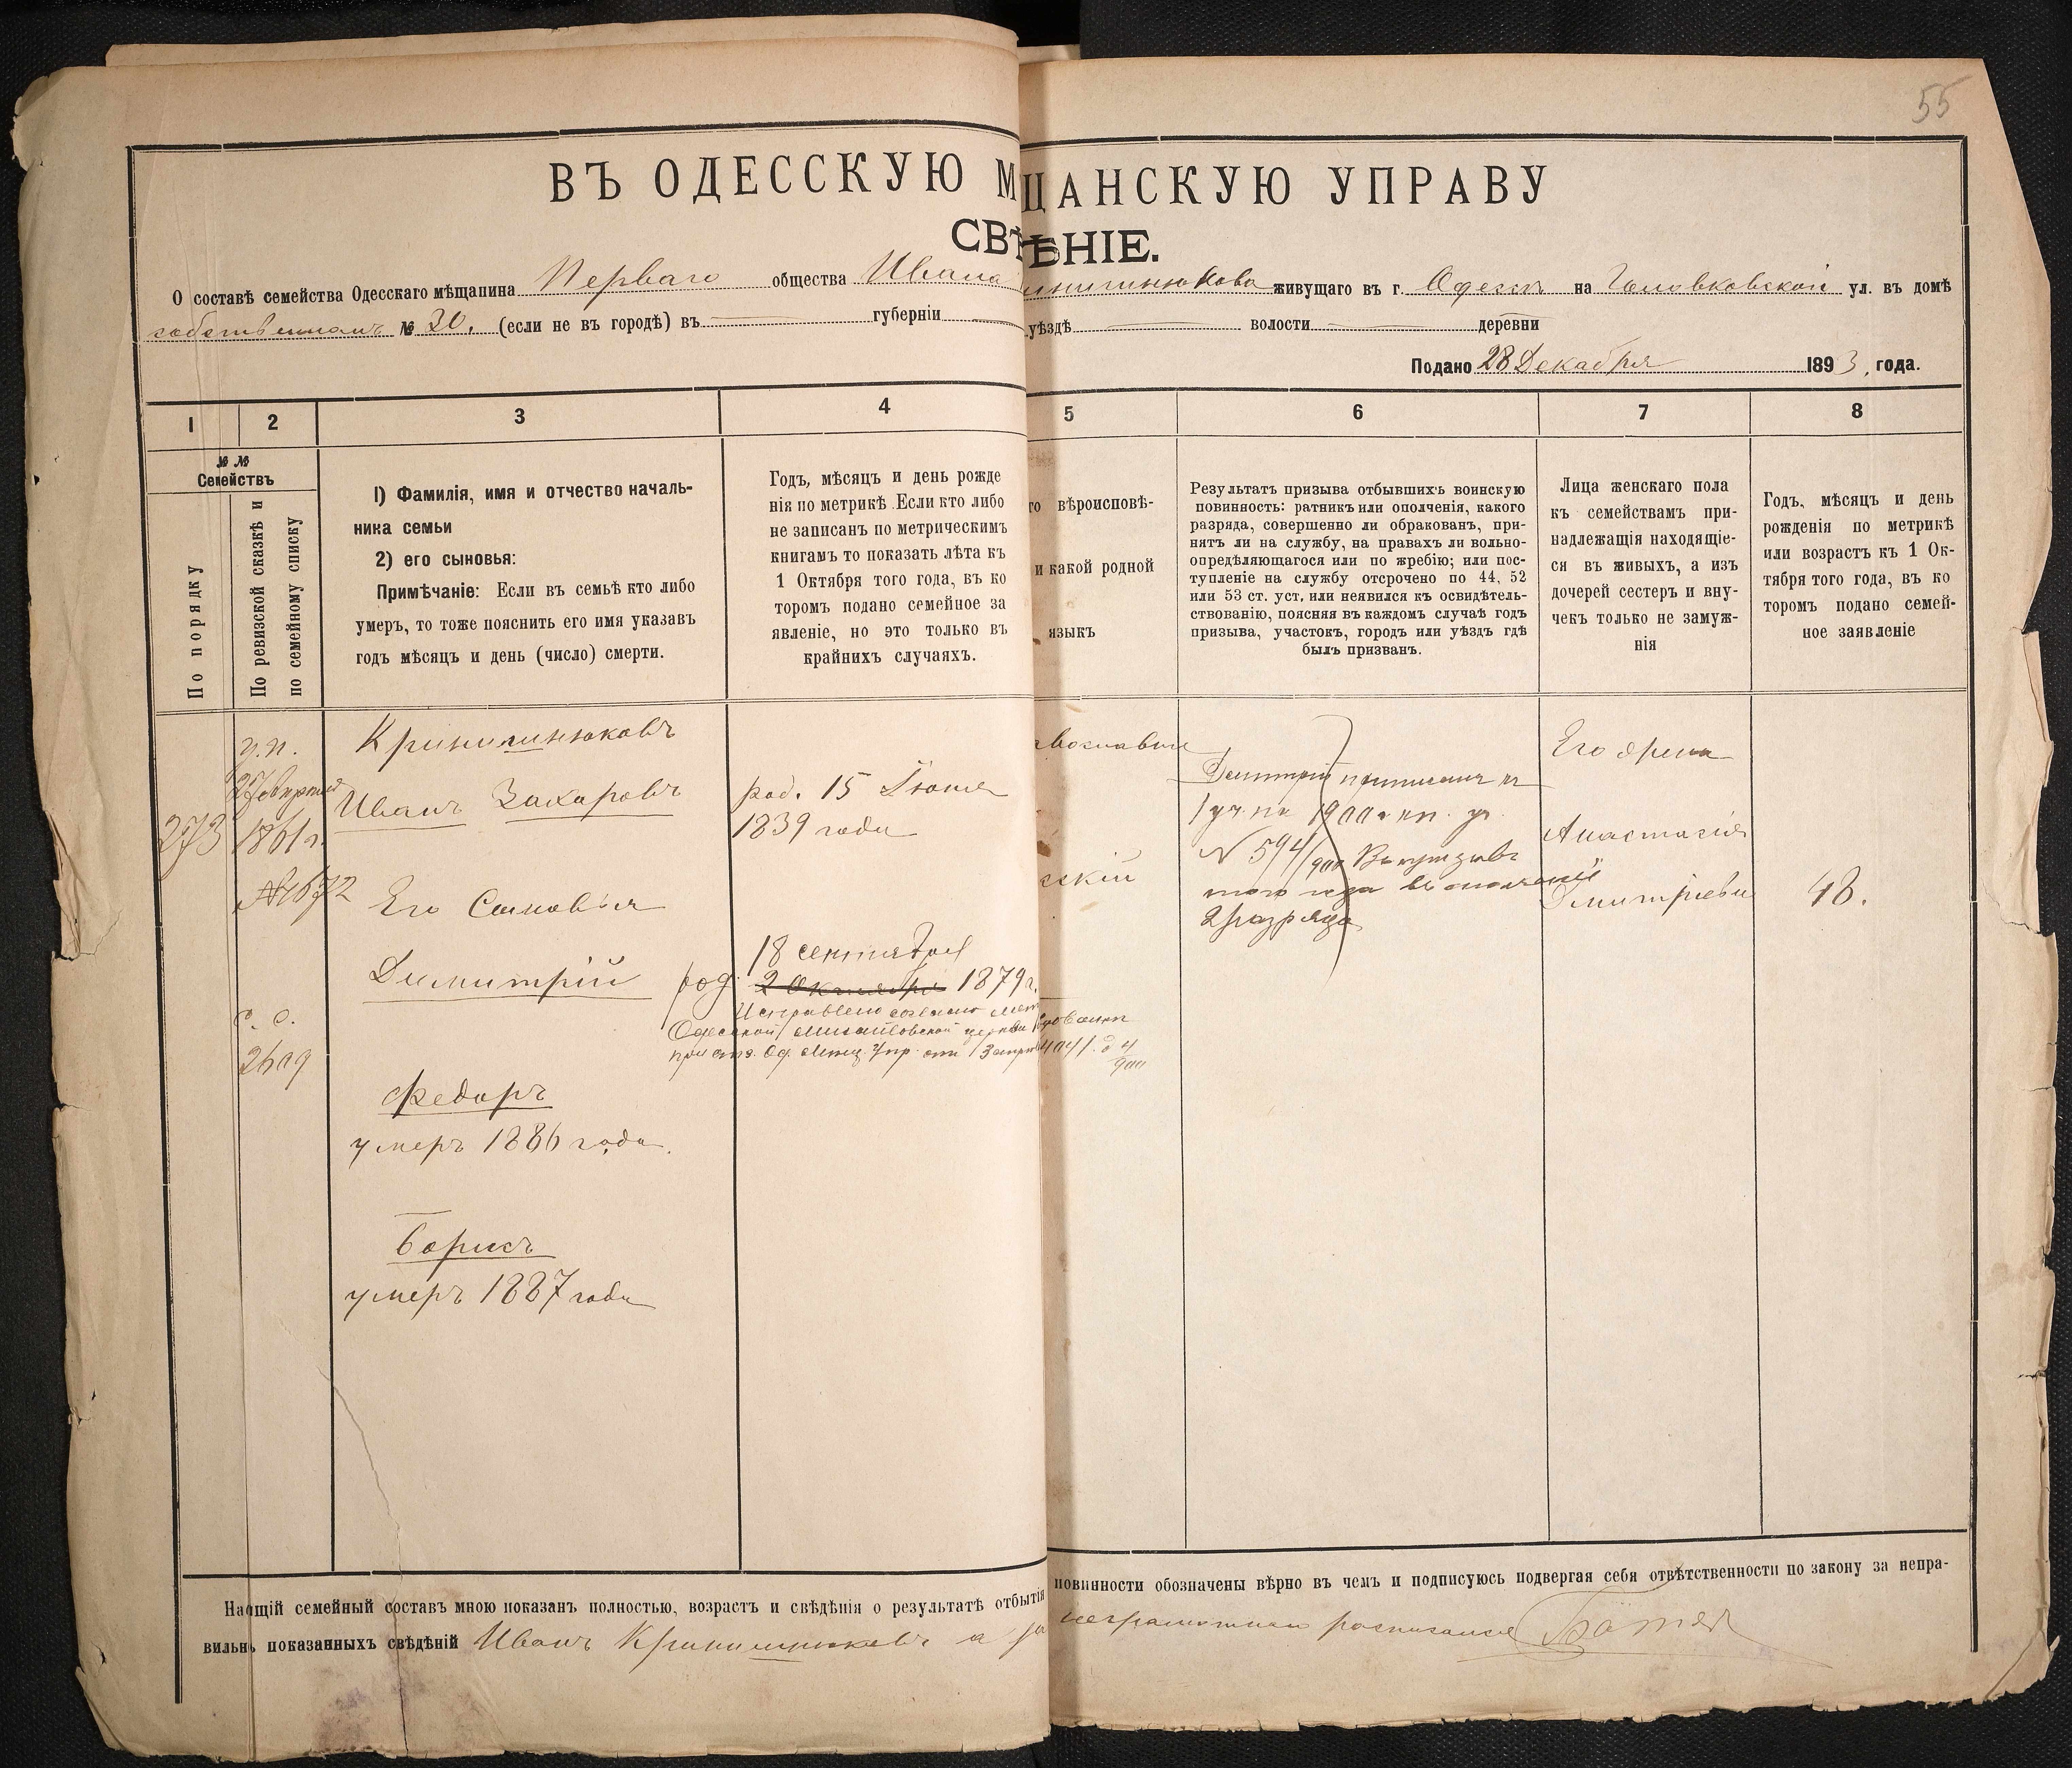 55
ВЪ ОДЕССКУЮ М ЩАНСКУЮ УПРАВУ
СВѢ ѢНІЕ.
О составѣ семейства Одесскаго мѣщанина Перваго общества Ивана живущаго въ г. Одессѣ на ул. въ домѣ
собственномъ № 20. (если не въ городѣ) въ губерніи уѣздѣ волости деревни
Подано 28 Декабря 1893, года.
1 2 3 4 5 6 7 8
№ №
Семействъ
По порядку
По ревизской сказкѣ и
по семейному списку
1) Фамилія, имя и отчество началь-
ника семьи
2) его сыновья:
Примѣчаніе: Если въ семьѣ кто либо
умеръ, то тоже пояснить его имя указавъ
годъ мѣсяцъ и день (число) смерти.
Годъ, мѣсяцъ и день рожде
нія по метрикѣ. Если кто либо
не записанъ по метрическимъ
книгамъ то показать лѣта къ
1 Октября того года, въ ко
торомъ подано семейное за
явленіе, но это только въ
крайнихъ случаяхъ.
го вѣроисповѣ-
и какой родной
языкъ
Результатъ призыва отбывшихъ воинскую
повинность: ратникъ или ополченія, какого
разряда, совершенно ли обракованъ, при-
нятъ ли на службу, на правахъ ли вольно-
опредѣляющагося или по жребію; или пос-
тупленіе на службу отсрочено по 44, 52
или 53 ст. уст. или неявился къ освидѣтель-
ствованію, поясняя въ каждомъ случаѣ годъ
призыва, участокъ, городъ или уѣздъ гдѣ
былъ призванъ.
Лица женскаго пола
къ семействамъ при-
надлежащія находящіе-
ся въ живыхъ, а изъ
дочерей сестеръ и вну-
чекъ только не замуж-
нія
Годъ, мѣсяцъ и день
рожденія по метрикѣ
или возрастъ къ 1 Ок-
тября того года, въ ко
торомъ подано семей-
ное заявленіе
273
у.п.
27 февраля
1861 г.
№ 1672
с. с.
2609
Криничнюковъ
Иванъ Захаровъ
род. 15 Іюня
1839 года
Его Сыновья
Димитрій
18 сентября
род. 2 Октября 1879 г.
Исправлено согласно
Одесской Михайловской церкви
Федоръ
умеръ 1886 года.
Борисъ
умеръ 1887 года
скій
Дмитрій приписанъ къ
1 уч. на 1900 г.
№ 594/900
того года въ ополченіе
2 разряда
Его жена
Анастасія
Дмитріева
48.
На щій семейный составъ мною показанъ полностью, возрастъ и свѣдѣнія о результатѣ отбытія повинности обозначены вѣрно въ чемъ и подписуюсь подвергая себя отвѣтственности по закону за непра-
вильн показанныхъ свѣдѣній Иванъ Криничнюковъ а неграмотнаго росписался